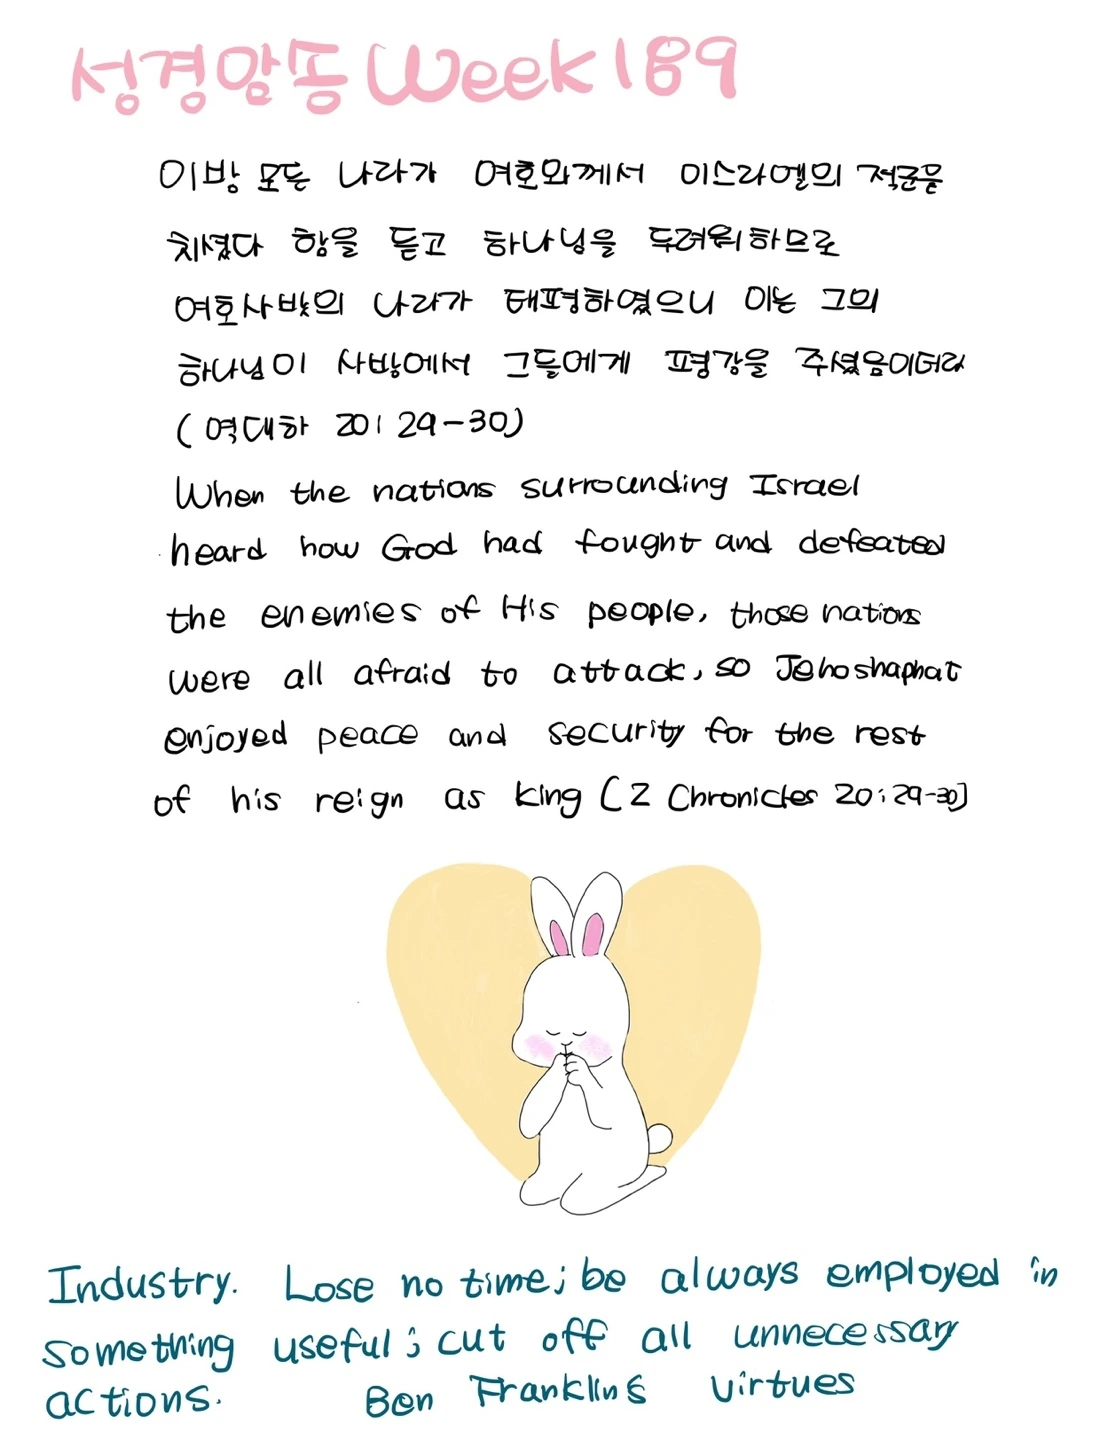 성경암송 Week 189
이방 모든 나라가 여호와께서 이스라엘의 적군을
치셨다 함을 듣고 하나님을 두려워하므로
여호사밧의 나라가 태평하였으니 이는 그의
하나님이 사방에서 그들에게 평강을 주셨음이더라
(역대하 20:29-30)
When the nations surrounding Israel
heard how God had fought and defeated
the enemies of His people, those nations
were all afraid to attack, so Jehoshaphat
enjoyed peace and security for the rest
of his reign as king (2 Chronicles 20:29-30)
Industry. Lose no time; be always employed in
something useful; cut off all unnecessary
actions. Ben Franklins virtues